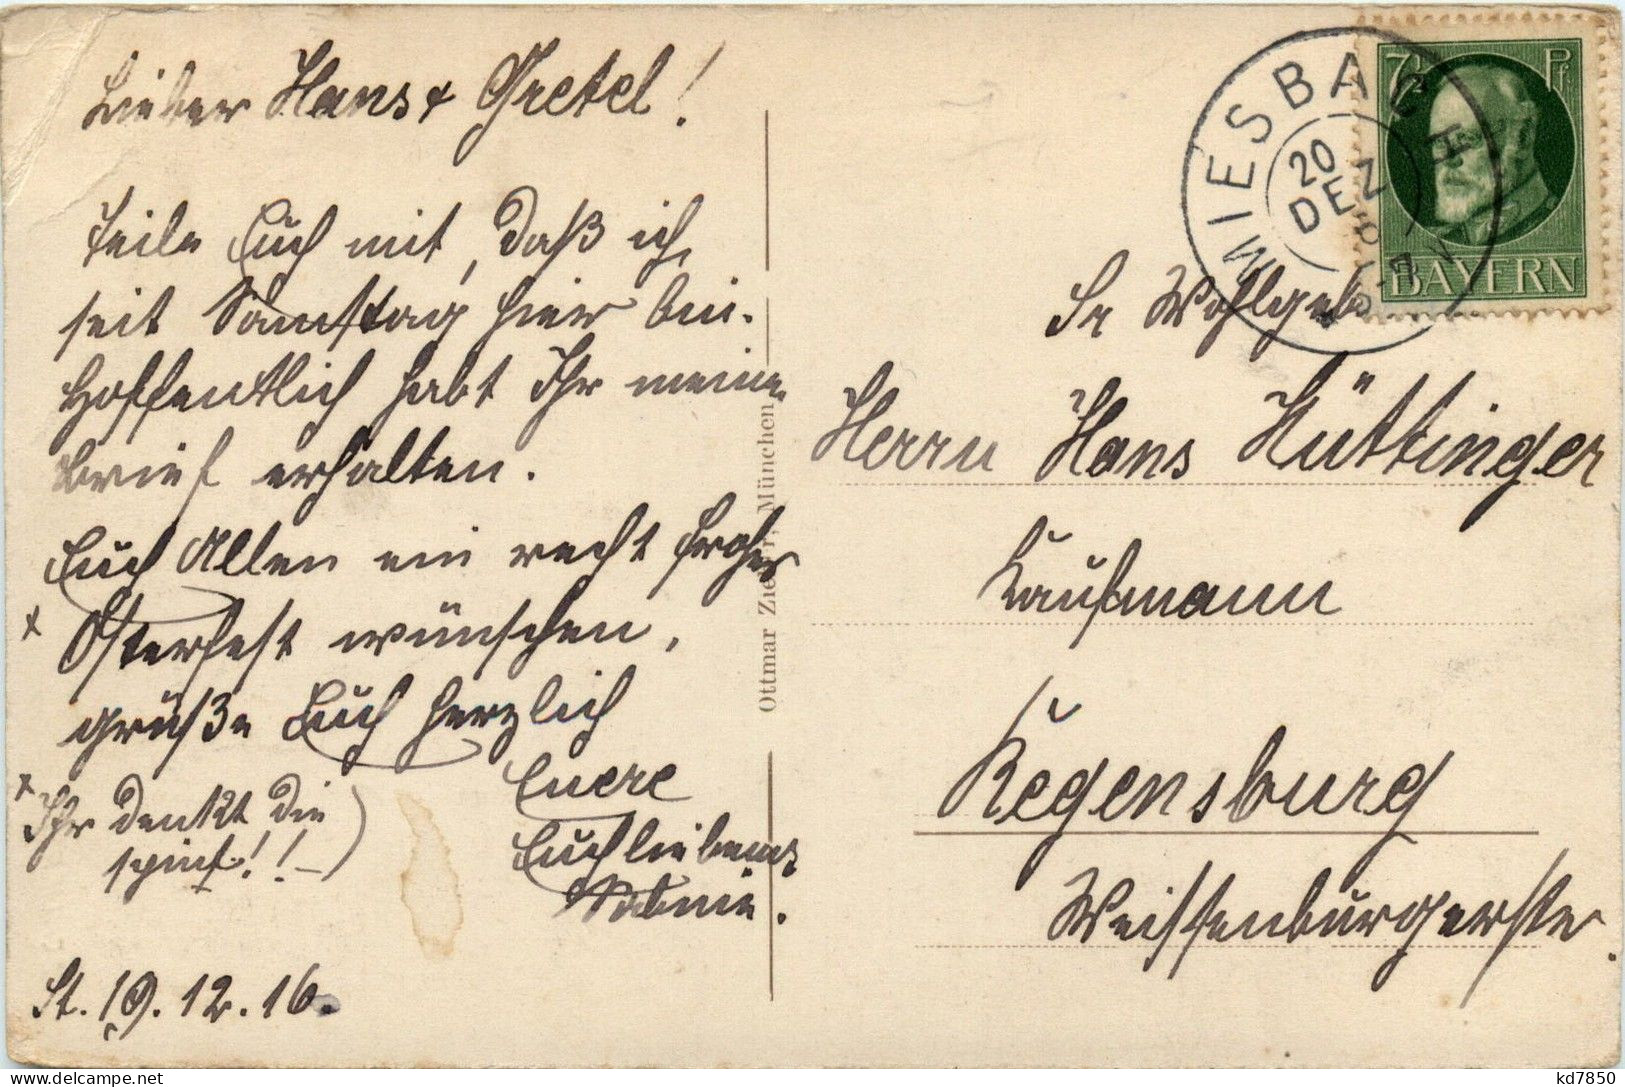 Lieber Hans & Gretel!
Teile Euch mit, daß ich
seit Samstag hier bin.
Hoffentlich habt Ihr meine
Brief erhalten.
Euch Allen ein recht frohes
x Osterfest wünschen,
grüße Euch herzlich
Euere
Euch liebende
x Ihr denkt die
spint!!-)
St. 19.12.16.
Ottmar Zieher, München
MIESBACH
20
DEZ
7½ Pf
BAYERN
Sr Wohlgeb
Herrn Hans Hüttinger
Kaufmann
Regensburg
Weissenburgerstr.
kd7850